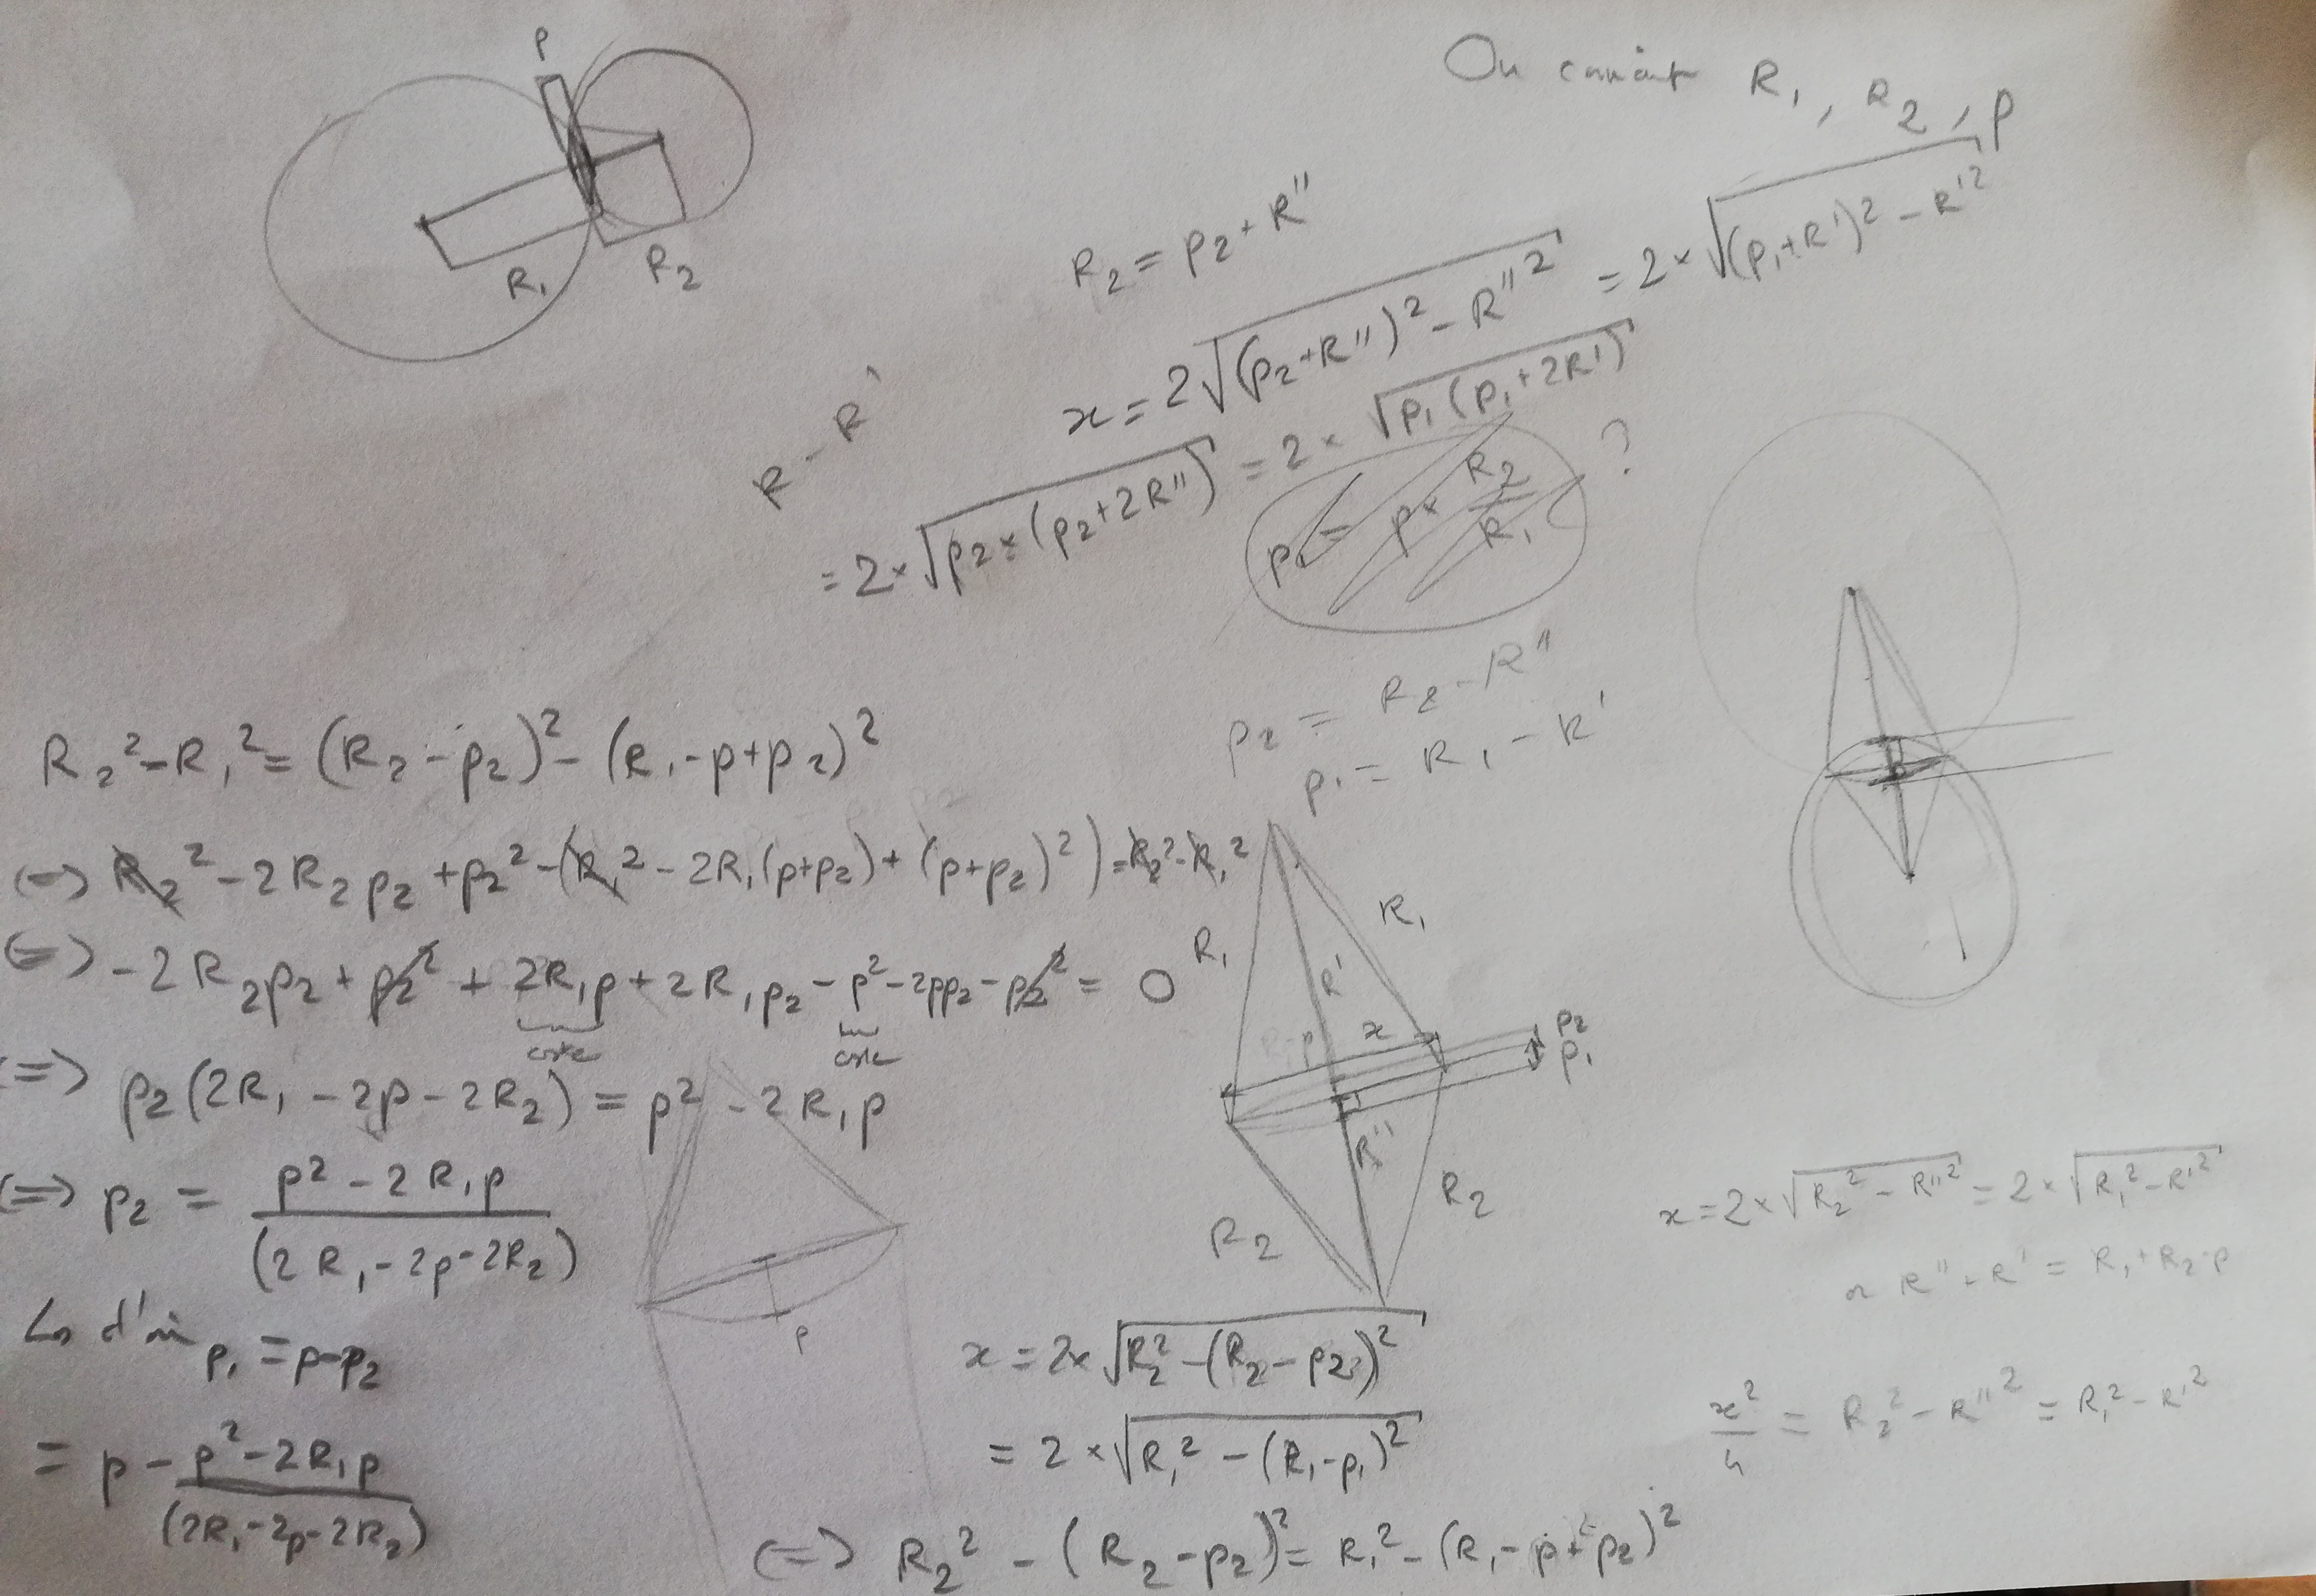 P
R₁
R₂
On connaît R₁, R₂, p
R₂ = p₂ + R''
x = 2√((p₂+R'')² - R''²) = 2×√((p₁+R')² - R'²)
R - R'
= 2×√(p₂×(p₂+2R'')) = 2×√(p₁(p₁+2R'))
p₁ = p× R₂/R₁ ?
p₂ = R₂ - R''
p₁ = R₁ - R'
R₂² - R₁² = (R₂ - p₂)² - (R₁ - p + p₂)²
(=) R₂² - 2R₂p₂ + p₂² - (R₁² - 2R₁(p+p₂) + (p+p₂)²) = R₂² - R₁²
(=) -2R₂p₂ + p₂² + 2R₁p + 2R₁p₂ - p² - 2pp₂ - p₂² = 0
cste
cste
(=) p₂(2R₁ - 2p - 2R₂) = p² - 2R₁p
(=) p₂ = (p² - 2R₁p)/(2R₁ - 2p - 2R₂)
↳ d'où p₁ = p - p₂
= p - (p² - 2R₁p)/(2R₁ - 2p - 2R₂)
p
R₁
R₁
R'
x
p₂
p₁
R''
R₂
R₂
x = 2×√(R₂² - (R₂ - p₂)²)
= 2×√(R₁² - (R₁ - p₁)²)
(=) R₂² - (R₂ - p₂)² = R₁² - (R₁ - p + p₂)²
x = 2×√(R₂² - R''²) = 2×√(R₁² - R'²)
R'' - R' = R₁ + R₂ - p
x²/4 = R₂² - R''² = R₁² - R'²